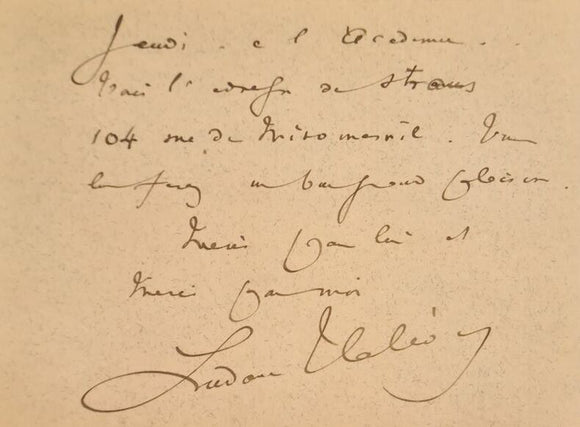 Jeudi. à l'Académie.
Voici l'adresse de Straus
104 rue de Miromesnil. Vous
lui ferez un bien grand plaisir.
Merci pour lui et
Merci pour moi
Ludovic Halévy